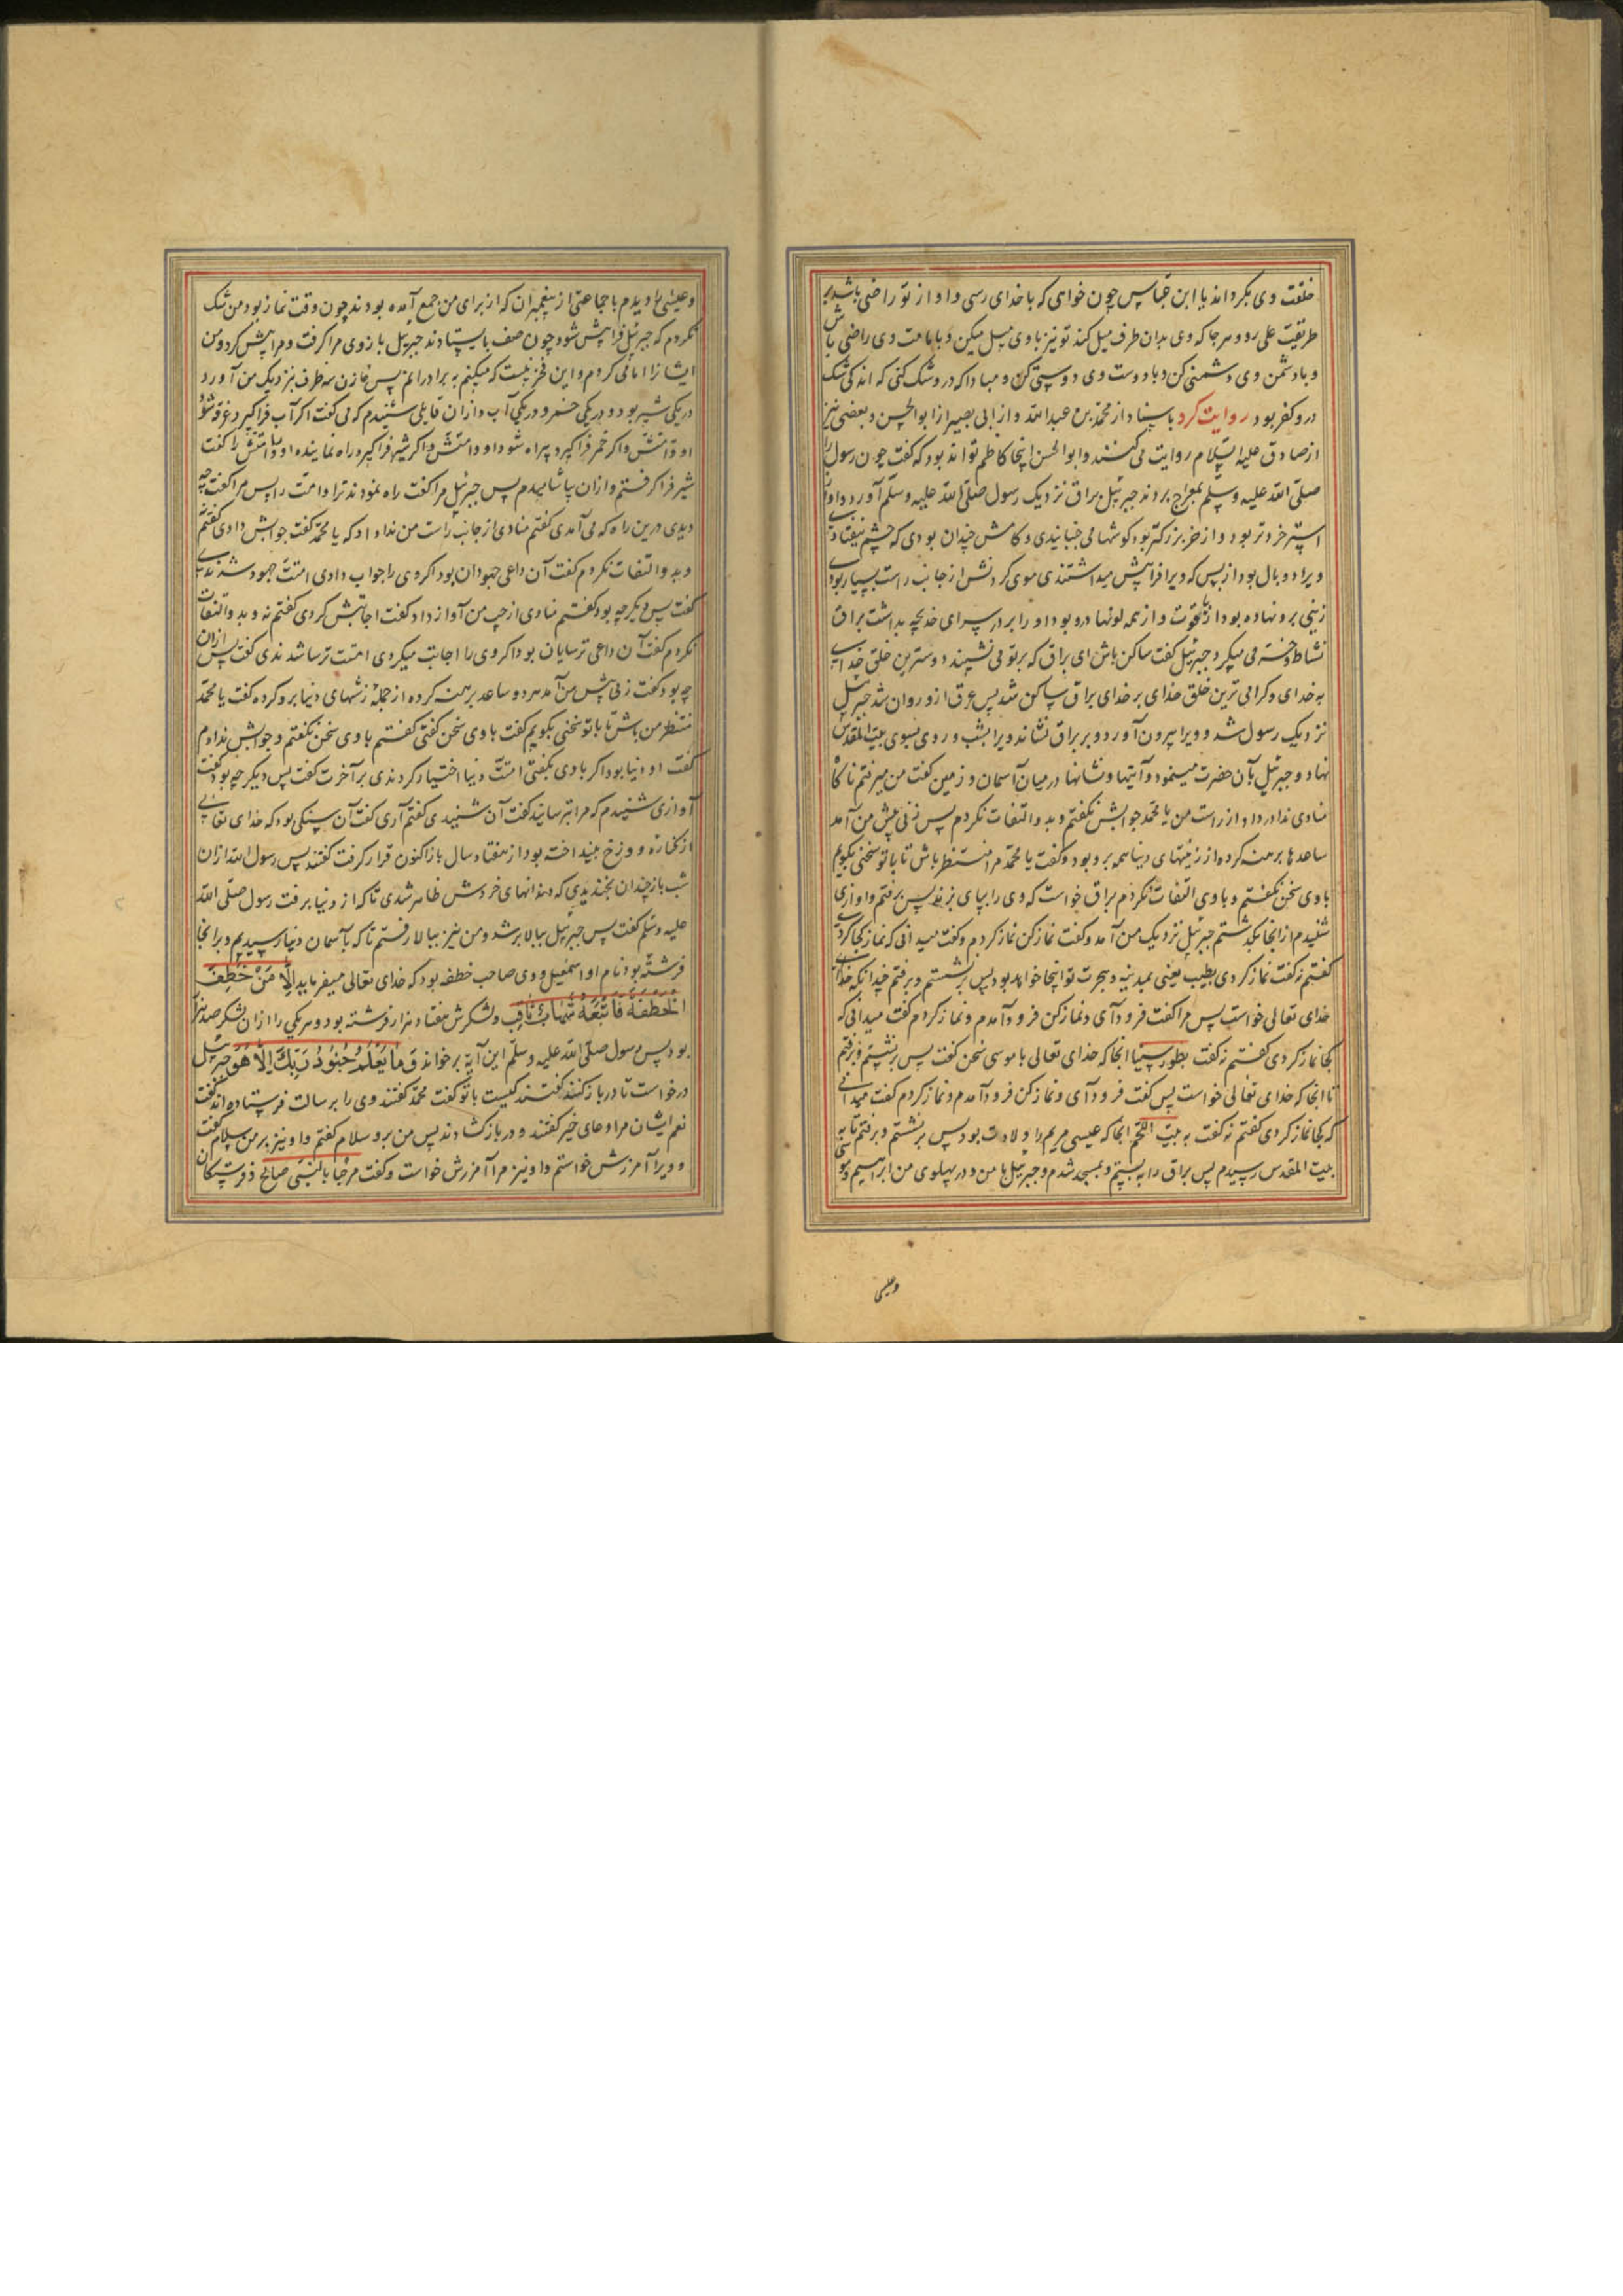 خلقت وی بکرداند یا ابن عباس چون خواهی که با خدای رسی و او از تو راضی باشد بر
طریقت علی رو و هر جا که وی بدان طرف میل کند تو نیز با وی میل میکن و بامامت وی راضی باش
و با دشمن وی دشمنی کن و با دوست وی دوستی کن و مبادا که در و شک کنی که اندکی شک
درو کفر بود روایت کرد باسناد از محمد بن عبدالله و از ابی بصیر از ابوالحسن و بعضی نیز
از صادق علیه السلام روایت می کنند و ابوالحسن اینجا کاظم تواند بود که گفت چون رسول را
صلی الله علیه وسلم بمعراج بردند جبرئیل براق نزدیک رسول صلی الله علیه وسلم آورد و او از
استر خردتر بود و از خر بزرکتر بود کوشها می جنبانیدی و کامش چندان بودی که چشم بیفتادی
ویرا دو بال بود از پس که ویرا فرا پیش میداشتندی موی کردنش از جانب راست بسیار بود
زینی برو نهاده بود از یاقوت و از همه لونها درو بود او را بر در سرای خدیجه بداشت براق
نشاط و خرمی میکرد جبرئیل گفت ساکن باش ای براق که بر تو می نشیند دوسترین خلق خدای
به خدای و کرامی ترین خلق خدای بر خدای براق ساکن شد پس عرق ازو روان شد جبرئیل
نزدیک رسول شد و ویرا بیرون آورد و بر براق نشاند ویرا بشب و روی بسوی بیت المقدس
نهاد و جبرئیل بآن حضرت مینمود و آیتها و نشانها در میان آسمان و زمین گفت من میرفتم ناکاه
منادی ندا در داد از راست من یا محمد جوابش نکفتم و بدو التفات نکردم پس زنی پیش من آمد
ساعدها برهنه کرده از زینتهای دنیا همه برو بود و گفت یا محمد مرا منتظر باش تا با تو سخنی بکویم
با وی سخن نکفتم و با وی التفات نکردم براق خواست که وی را بپای بزند پس برفتم و اوازی
شنیدم از انجا بکذشتم جبرئیل نزدیک من آمد و گفت نماز کن نماز کردم و گفت میدانی که نماز کجا کردی
گفتم نه گفت نماز کردی بطیب یعنی بمدینه و هجرت تو اینجا خواهد بود پس برنشستم و برفتم چندانکه خدای
خدای تعالی خواست پس مرا گفت فرود آی و نماز کن فرود آمدم و نماز کردم گفت میدانی که
کجا نماز کردی گفتم نه گفت بطور سینا انجا که خدای تعالی با موسی سخن گفت پس برنشستم و برفتم
تا انجا که خدای تعالی خواست پس گفت فرود آی و نماز کن فرود آمدم و نماز کردم گفت میدانی
که کجا نماز کردی گفتم نه گفت به بیت اللحم انجا که عیسی مریم را ولادت بود پس برنشستم و برفتم تا به
بیت المقدس رسیدم پس براق را به بستم و بمسجد شدم و جبرئیل با من و در پهلوی من ابراهیم و موسی
وعیسی
و عیسی را دیدم با جماعتی از پیغمبران که از برای من جمع آمده بودند چون وقت نماز بود من شک
نکردم که جبرئیل فرا پیش شود چون صف بایستادند جبرئیل بازوی مرا کرفت و مرا پیش کرد و من
ایشانرا امامی کردم و این فخر نیست که میکنم به برادرانم پس خازن سه ظرف نزدیک من آورد
در یکی شیر بود و در یکی خمر و در یکی آب و از آن قایلی شنیدم که می گفت اکر آب فراکیرد غرقه شود
او و امتش و اکر خمر فراکیرد بیراه شود او و امتش و اکر شیر فراکیرد راه نماینده او را و امتش را گفت
شیر فرا کرفتم و ازان بیاشامیدم پس جبرئیل مرا گفت راه نمودند ترا و امت را پس مرا گفت چه
دیدی درین راه که می آمدی گفتم منادی از جانب راست من ندا داد که یا محمد گفت جوابش دادی گفتم نه
و بدو التفات نکردم گفت آن داعی جهودان بود اکر وی را جواب دادی امتت جهود شدندی
گفت پس دیکر چه بود گفتم منادی از چپ من آواز داد گفت اجابتش کردی گفتم نه و بدو التفات
نکردم گفت آن داعی ترسایان بود اکر وی را اجابت میکردی امتت ترسا شدندی گفت پس ازان
چه بود گفت زنی پیش من آمد هر دو ساعد برهنه کرده از جمله زینتهای دنیا برو کرده گفت یا محمد
منتظر من باش تا با تو سخنی بکویم گفت با وی سخن گفتی گفتم با وی سخن نکفتم و جوابش ندادم
گفت او دنیا بود اکر با وی بگفتی امتت دنیا اختیار کردندی بر آخرت گفت پس دیکر چه بود گفت
آوازی شنیدم که مرا بترسانید گفت آن شنیدی گفتم آری گفت آن سنکی بود که خدای تعالی
از کناره دوزخ بینداخته بود از هفتاد سال باز اکنون قرار کرفت گفتند پس رسول الله ازان
شب باز چندان بخندیدی که دندانهای خردش ظاهر شدی تا که از دنیا برفت رسول صلی الله
علیه وسلم گفت پس جبرئیل ببالا بر شد و من نیز ببالا رفتم تا که بآسمان دنیا رسیدیم و بر انجا
فرشته بود نام او اسمعیل و وی صاحب خطفه بود که خدای تعالی میفرماید إِلَّا مَنْ خَطِفَ
الْخَطْفَةَ فَأَتْبَعَهُ شِهَابٌ ثَاقِب و لشکرش هفتاد هزار فرشته بود و هر یکی را ازان لشکر صد هزار
بود پس رسول صلی الله علیه وسلم این آیه برخواند وَمَا يَعْلَمُ جُنُودَ رَبِّكَ إِلَّا هُوَ جبرئیل
درخواست تا در باز کنند گفتند کیست با تو گفت محمد گفتند وی را برسالت فرستاده اند گفت
نعم ایشان مرا دعای خیر گفتند و در باز کشادند پس من برو سلام گفتم و او نیز بر من سلام گفت
و ویرا آمرزش خواستم و او نیز مرا آمرزش خواست و گفت مرحبا بالنبی صالح و فرشتکان